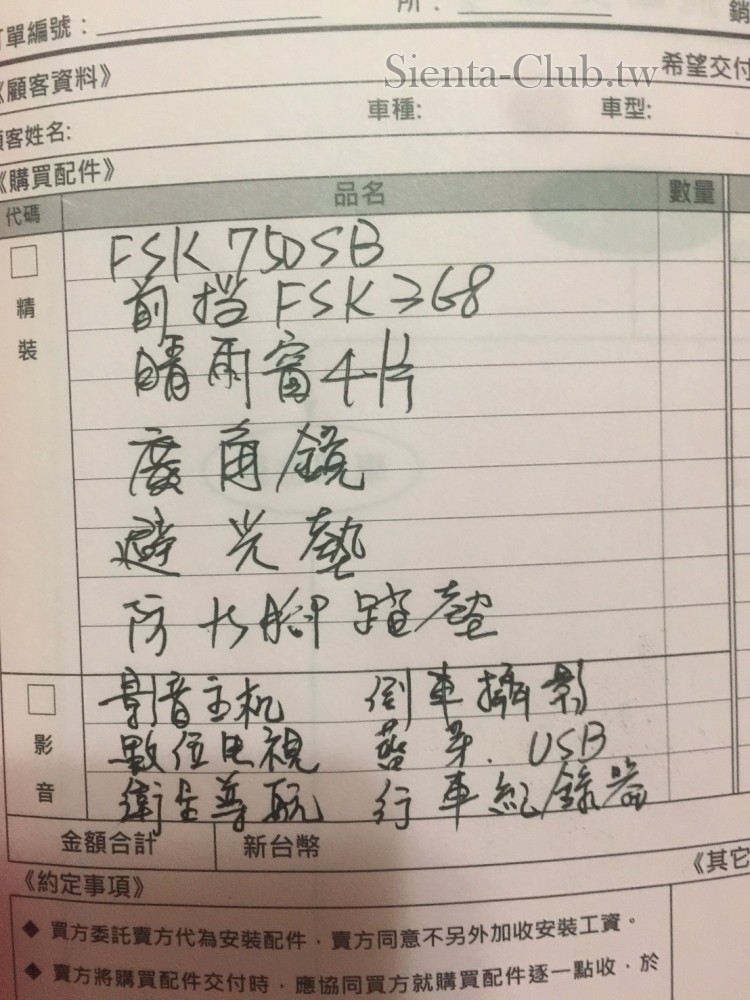 訂單編號：
所：
銷
Sienta-Club.tw
《顧客資料》
希望交付
顧客姓名:
車種:
車型:
《購買配件》
代碼
品名
數量
精裝
FSK 750SB
前挡 FSK 368
晴雨窗4片
廣角鏡
避光墊
阿大腳踏墊
影音
影音主机 倒車攝影
數位电視 藍芽. USB
衛星導航 行車紀錄器
金額合計
新台幣
《其它
《約定事項》
◆ 買方委託賣方代為安裝配件，賣方同意不另外加收安裝工資。
◆ 賣方將購買配件交付時，應協同買方就購買配件逐一點收，於